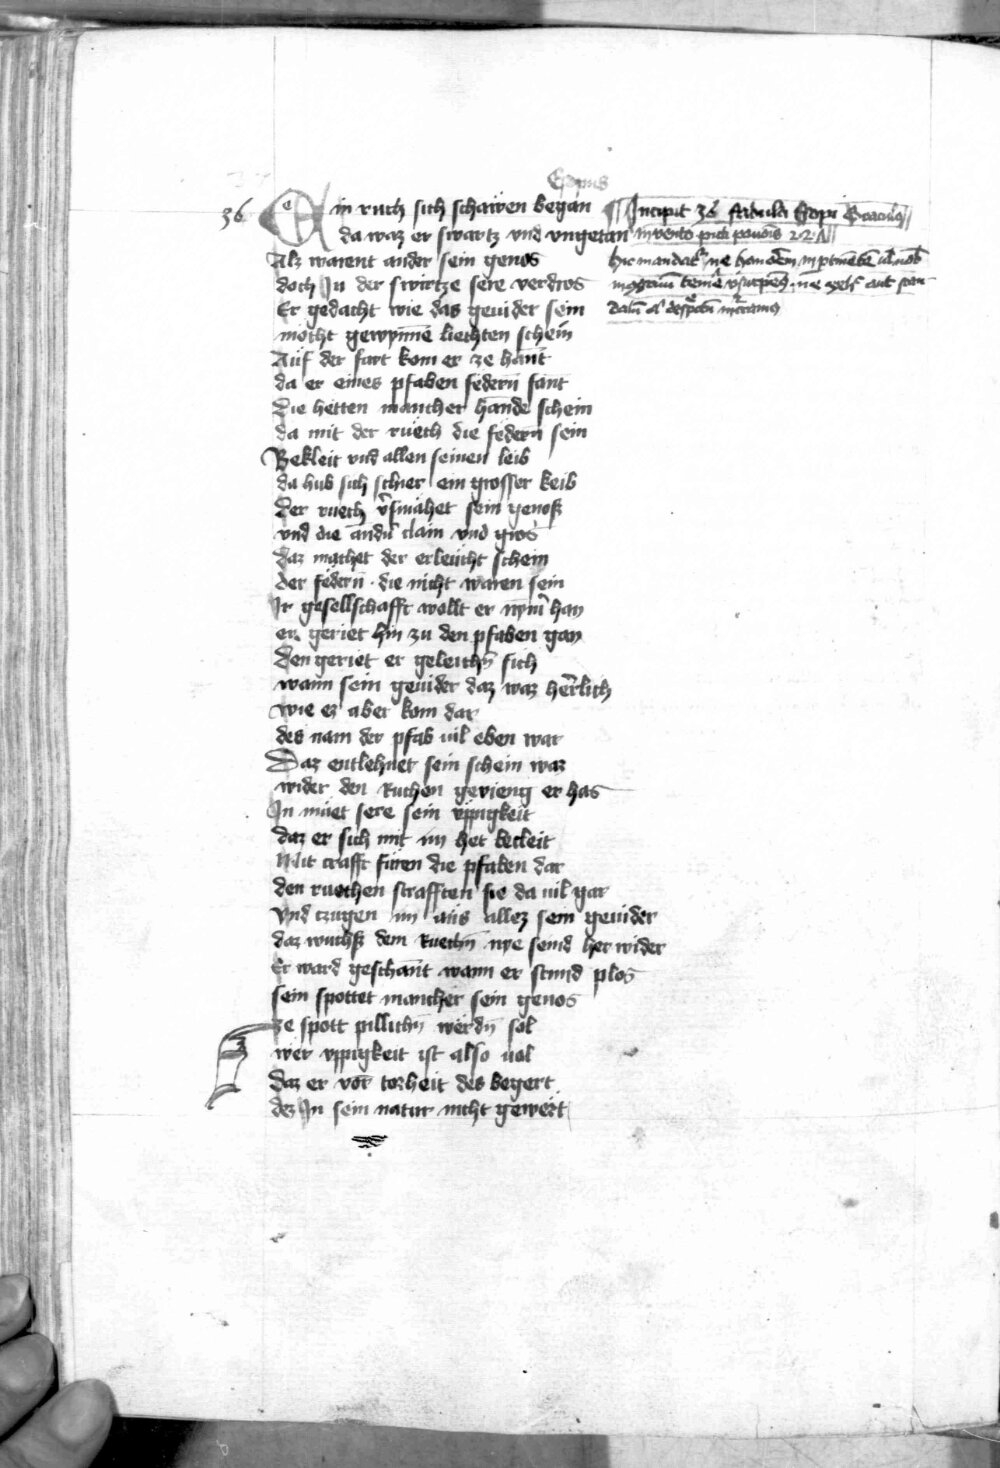 36
Ein ruch sich schawen began
da waz er swartz vnd vngetan
Alz warent ander sein genos
doch In der swirtze sere verdros
Er gedacht wie das geuider sein
mocht gewynnē liechten schein
Auf der fart kom er ze hant
da er eines pfaben federn fant
Die hetten mancher hande schein
da mit der ruech die federn sein
Bekleit vnd allen seinen leib
da hub sich schier ein grosser keib
Der ruech v̄smahet sein genosz
vnd die andn̄ clain vnd gros
daz machet der erleucht schein
der federn · die nicht waren sein
Ir gesellschafft wollt er nym̄ han
er geriet hin zu den pfaben gan
den geriet er geleichn̄ sich
wann sein geuider daz waz herlich
wie ez aber kom dar
des nam der pfab vil eben war
Daz entlehnet sein schein waz
wider den Ruchen gevieng er has
In müet sere sein vppigkeit
daz er sich mit im het becleit
Mit crafft füren die pfaben dar
den ruechen strafften sie da vil gar
vnd tzugen im aus allez sein geuider
daz wuchsz dem Ruechn̄ nye seind her wider
Er ward geschant wann er stund plos
sein spottet mancher sein genos
ze spott pillichn̄ werdn̄ sol
wer vppigkeit ist also vol
daz er vor torheit des begert
dez In sein natur nicht gewert
Incipit 36 fabula Esopi